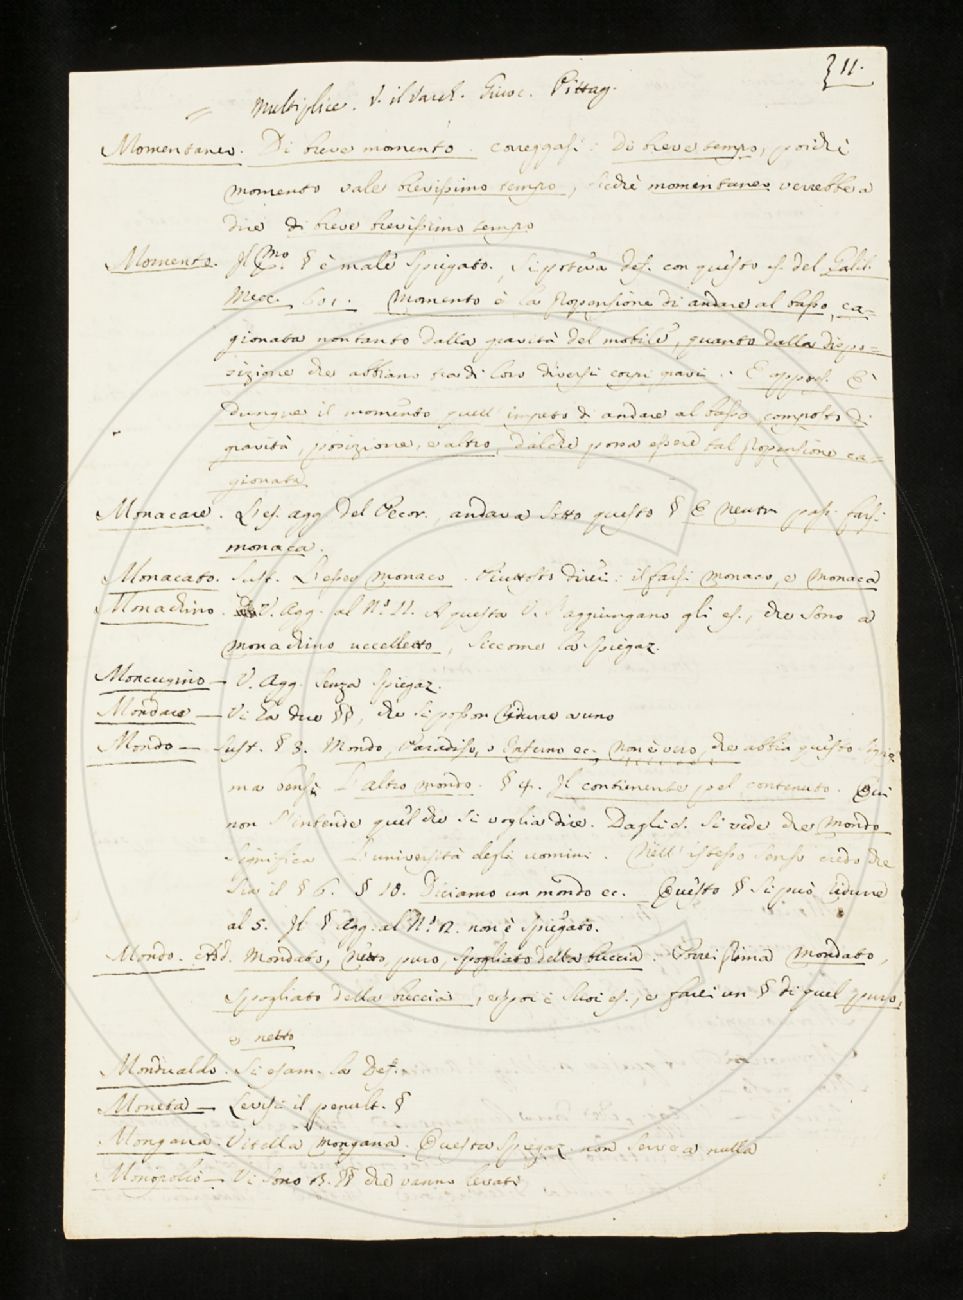 311.
Multiplice. V. il Varch. Giuoc. Pittag.
Momentaneo. Di breve momento. correggasi: Di breve tempo, poichè
momento vale brevissimo tempo, sichè momentaneo verrebbe a
dire di breve brevissimo tempo
Momento. Il Mo. § è male spiegato. Si poteva def. con questo es. del Galil.
Mecc. 601. Momento è la propensione di andare al basso, ca-
gionata non tanto dalla gravità del mobile, quanto dalla dispo-
sizione che abbiano tra di loro diversi corpi gravi: E appress. È
dunque il momento quell'impeto di andare al basso, composto di
gravità, posizione, e altro, dal che possa essere tal propensione ca-
gionata
Monacare. L'es. agg. del Pecor. andava sotto questo § E neutr. pass. farsi
monaca.
Monacato. Sust. L'esser monaco. Piuttosto direi: il farsi monaco, e monaca
Monachino. V. Agg. al N. 11. A questa V. s'aggiungano gli es., che sono a
monachino uccelletto, siccome la spiegaz.
Moncugino — V. Agg. senza spiegaz.
Mondare — Vi ha due §§, che si posson ridurre a uno
Mondo — Sust. § 3. Mondo, Paradiso, o Inferno ec. Non è vero, che abbia questo signif.
ma bensì L'altro mondo. § 4. Il continente pel contenuto. Qui
non s'intende quel che si voglia dire. Dagli es. si vede che Mondo
significa L'università degli uomini. Nell'istesso senso credo che
sia il § 6. § 10. Diciamo un mondo ec. Questo § si può ridurre
al 5. Il § Agg. al N. 12. non è spiegato.
Mondo. Add. Mondato, netto, puro, spogliato della buccia. Porrei prima Mondato,
spogliato della buccia, e poi i suoi es., e farei un § di quel puro,
e netto
Mondualdo. Si esam. la Def.
Moneta — Levisi il penult. §
Mongana. Vitella mongana. Questa spiegaz. non serve a nulla
Monopolio — Vi sono 13. §§ che vanno levati